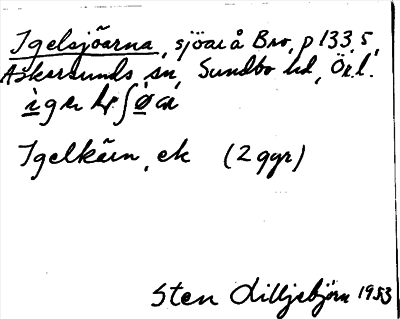 Igelsjöarna, sjöar å Bro, p 133 5,
Askersunds sn, Sundbo hd, Ör.l.
Igelkärn, ek (2 ggr)
Sten Lilljebjörn 1953